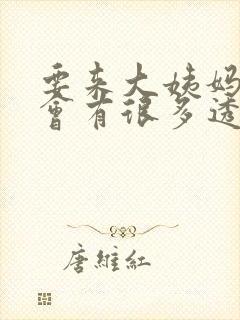 要来大姨妈
会有很多透
唐維紅